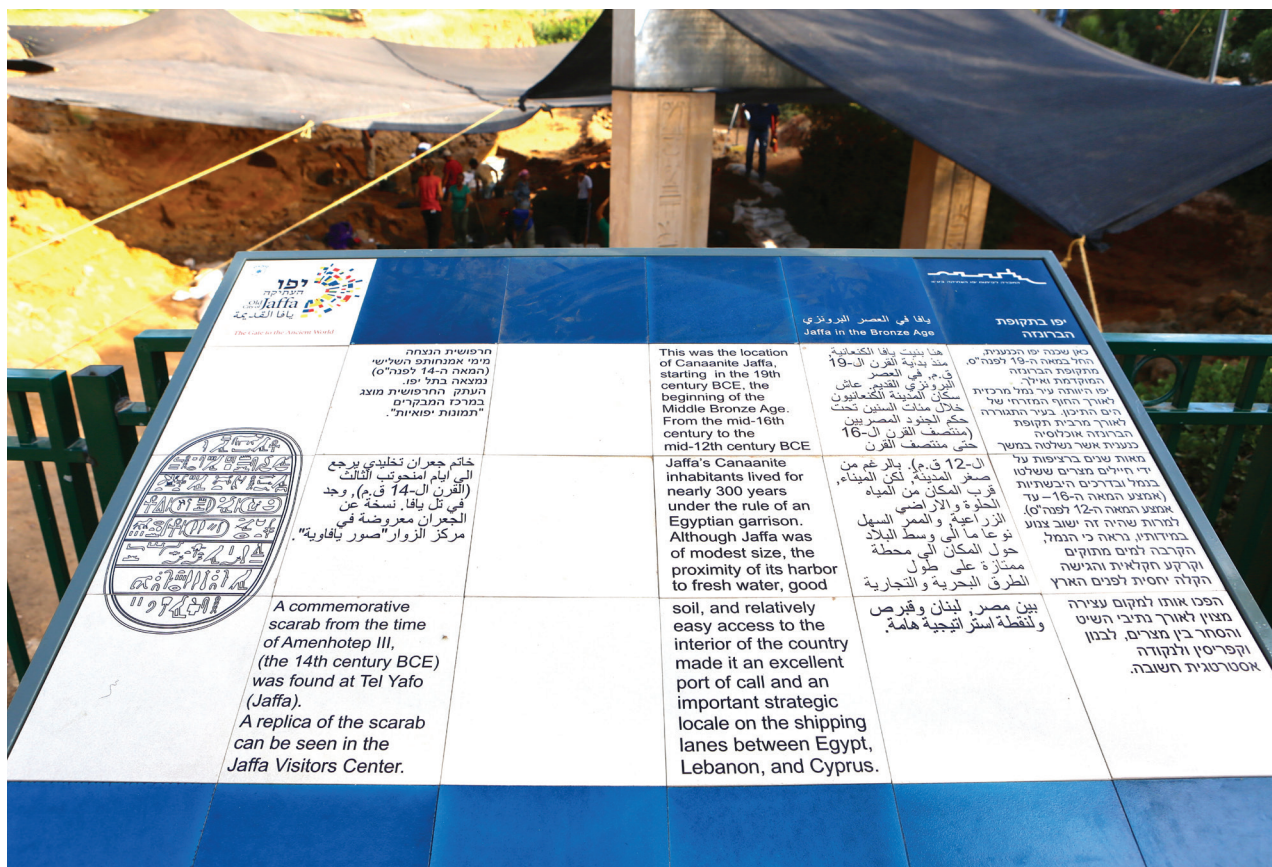 יפו
העתיקה
Old City of Jaffa
يافا القديمة
The Gate to the Ancient World
يافا في العصر البرونزي
Jaffa in the Bronze Age
יפו בתקופת
הברונזה
חרפושית הנצחה
מימי אמנחותפ השלישי
(המאה ה-14 לפנה"ס)
נמצאה בתל יפו.
העתק החרפושית מוצג
במרכז המבקרים
"תמונות יפואיות".
خاتم جعران تخليدي يرجع
الى أيام امنحوتب الثالث
(القرن ال-14 ق.م), وجد
في تل يافا. نسخة عن
الجعران معروضة في
مركز الزوار"صور يافاوية".
A commemorative
scarab from the time
of Amenhotep III,
(the 14th century BCE)
was found at Tel Yafo
(Jaffa).
A replica of the scarab
can be seen in the
Jaffa Visitors Center.
This was the location
of Canaanite Jaffa,
starting in the 19th
century BCE, the
beginning of the
Middle Bronze Age.
From the mid-16th
century to the
mid-12th century BCE
Jaffa's Canaanite
inhabitants lived for
nearly 300 years
under the rule of an
Egyptian garrison.
Although Jaffa was
of modest size, the
proximity of its harbor
to fresh water, good
soil, and relatively
easy access to the
interior of the country
made it an excellent
port of call and an
important strategic
locale on the shipping
lanes between Egypt,
Lebanon, and Cyprus.
هنا بنيت يافا الكنعانية,
منذ بداية القرن ال-19
ق.م. في العصر
البرونزي القديم. عاش
سكان المدينة الكنعانيون
خلال مئات السنين تحت
حكم الجنود المصريين
(منتصف القرن ال-16
حتى منتصف القرن
ال-12 ق.م). بالرغم من
صغر المدينة, لكن الميناء,
قرب المكان من المياه
الحلوة والاراضي
الزراعية, والممر السهل
نوعا ما الى وسط البلاد
حول المكان الى محطة
ممتازة على طول
الطرق البحرية والتجارية
بين مصر, لبنان وقبرص
ولنقطة استراتيجية هامة.
כאן שכנה יפו הכנענית,
החל במאה ה-19 לפנה"ס,
מתקופת הברונזה
המוקדמת ואילך.
יפו היוותה עיר נמל מרכזית
לאורך החוף המזרחי של
הים התיכון. בעיר התגוררה
לאורך מרבית תקופת
הברונזה אוכלוסיה
כנענית אשר נשלטה במשך
מאות שנים ברציפות על
ידי חיילים מצרים ששלטו
בנמל ובדרכים היבשתיות
(אמצע המאה ה-16 – עד
אמצע המאה ה-12 לפנה"ס)
למרות שהיה זה ישוב צנוע
במידותיו, נראה כי הנמל,
הקרבה למים מתוקים
וקרקע חקלאית והגישה
הקלה יחסית לפנים הארץ
הפכו אותו למקום עצירה
מצוין לאורך נתיבי השיט
והסחר בין מצרים, לבנון
וקפריסין ולנקודה
אסטרטגית חשובה.